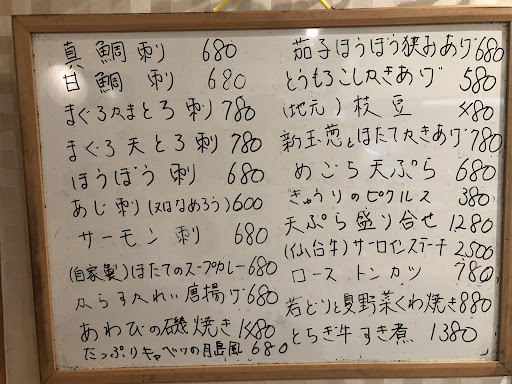 真鯛刺 680
甘鯛刺 680
まぐろ中とろ刺 780
まぐろ天とろ刺 780
ほうぼう刺 680
あじ刺(又はなめろう)600
サーモン刺 680
(自家製)ほたてのスープカレー680
からすかれい唐揚げ680
あわびの磯焼き
たっぷりキャベツの月島風 680
茄子ほうぼう挟みあげ680
とうもろこしかきあげ 580
(地元)枝豆 480
新玉葱とほたてかきあげ780
めごち天ぷら 680
きゅうりのピクルス 380
天ぷら盛り合せ 1280
(仙台牛)サーロインステーキ2500
ローストンカツ 780
若どりと夏野菜くわ焼き880
とちぎ牛すき煮 1380